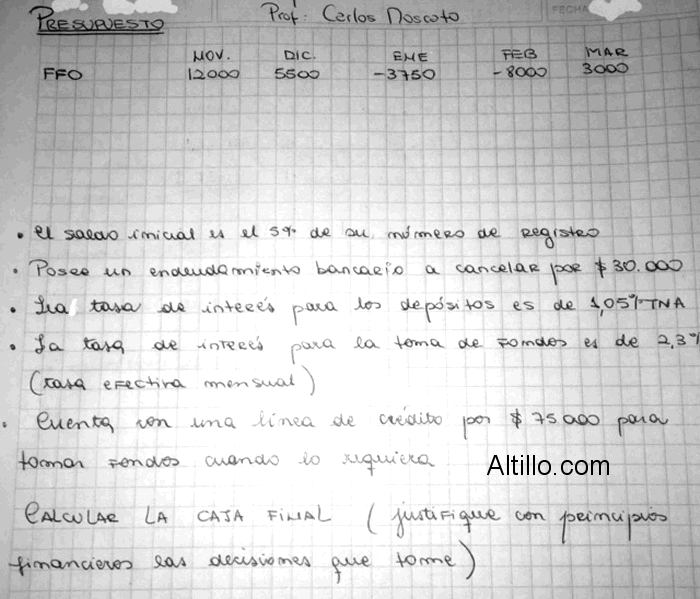 PRESUPUESTO Prof: Carlos Moscoto FECHA
NOV. DIC. ENE FEB MAR
FFO 12000 5500 -3750 -8000 3000
• El saldo inicial es el 5% de su número de Registro
• Posee un endeudamiento bancario a cancelar por $30.000
• La tasa de interés para los depósitos es de 1,05% TNA
• La tasa de interés para la toma de fondos es de 2,3%
(tasa efectiva mensual)
• Cuenta con una línea de crédito por $75.000 para
tomar fondos cuando lo requiera
Altillo.com
CALCULAR LA CAJA FINAL (justifique con principios
financieros las decisiones que tome)